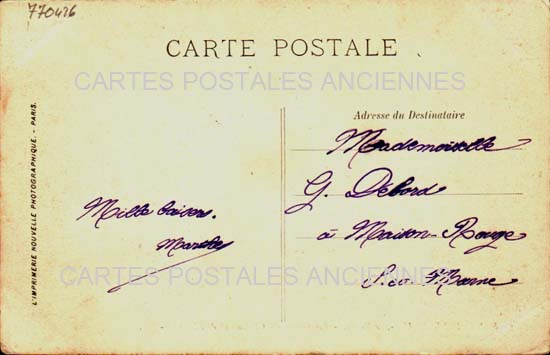 770426
CARTE POSTALE
CARTES POSTALES ANCIENNES
Adresse du Destinataire
L'IMPRIMERIE NOUVELLE PHOTOGRAPHIQUE. - PARIS.
Mille baisers.
Marthe
Mademoiselle
G. Débord
à Maison-Rouge
S. et Marne
CARTES POSTALES ANCIENNES